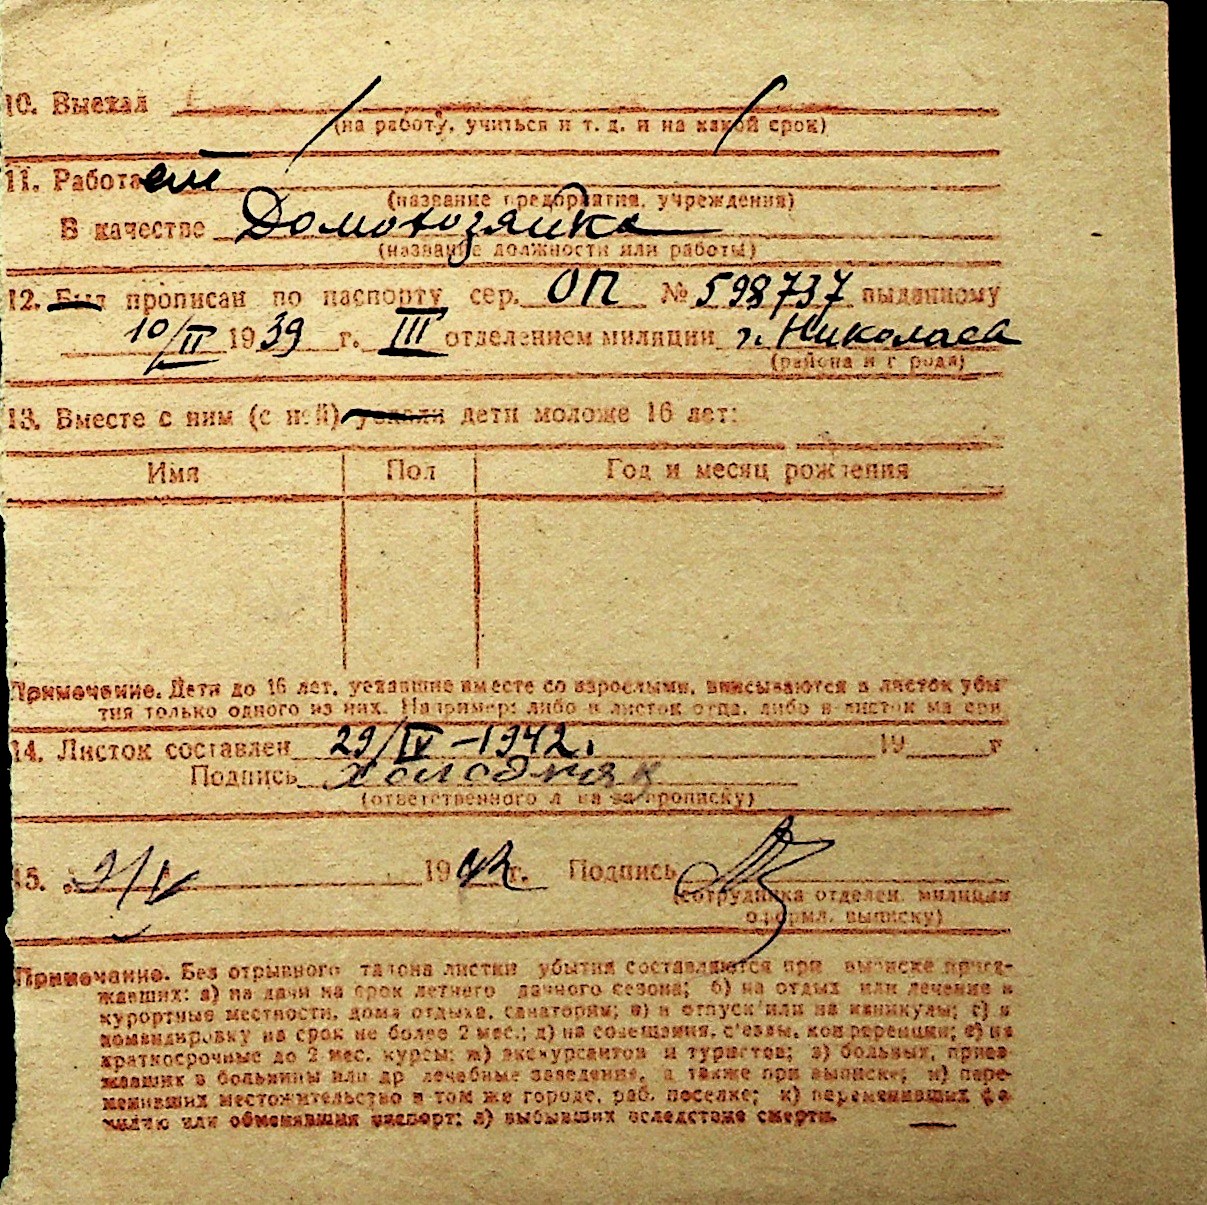 10. Выехал
(на работу, учиться и т. д. и на какой срок)
11. Работает
(название предприятия, учреждения)
В качестве Домохозяйка
(название должности или работы)
12. Был прописан по паспорту сер. ОП № 598737 выданному
10/II 1939 г. III отделением милиции г. Николаева
(района и города)
13. Вместе с ним (с ней) уехали дети моложе 16 лет:
Имя Пол Год и месяц рождения
Примечание. Дети до 16 лет, уехавшие вместе со взрослыми, вписываются в листок убы-
тия только одного из них. Например: либо в листок отца, либо в листок матери
14. Листок составлен 29/IV-1942. 19 г
Подпись Холодняк
(ответственного лица за прописку)
15. 2/V 1942 г. Подпись
(сотрудника отделен. милиции
оформл. выписку)
Примечание. Без отрывного талона листки убытия составляются при выписке приез-
жавших: а) на дачи на срок летнего дачного сезона; б) на отдых или лечение в
курортные местности, дома отдыха, санатории; в) в отпуск или на каникулы; г) в
командировку на срок не более 2 мес.; д) на совещания, с'езды, конференции; е) на
краткосрочные до 2 мес. курсы; ж) экскурсантов и туристов; з) больных, приез-
жавших в больницы или др лечебные заведения, а также при выписке; и) пере-
менивших местожительство в том же городе, раб. поселке; к) переменивших фа-
милию или обменявших паспорт; л) выбывших вследствие смерти.